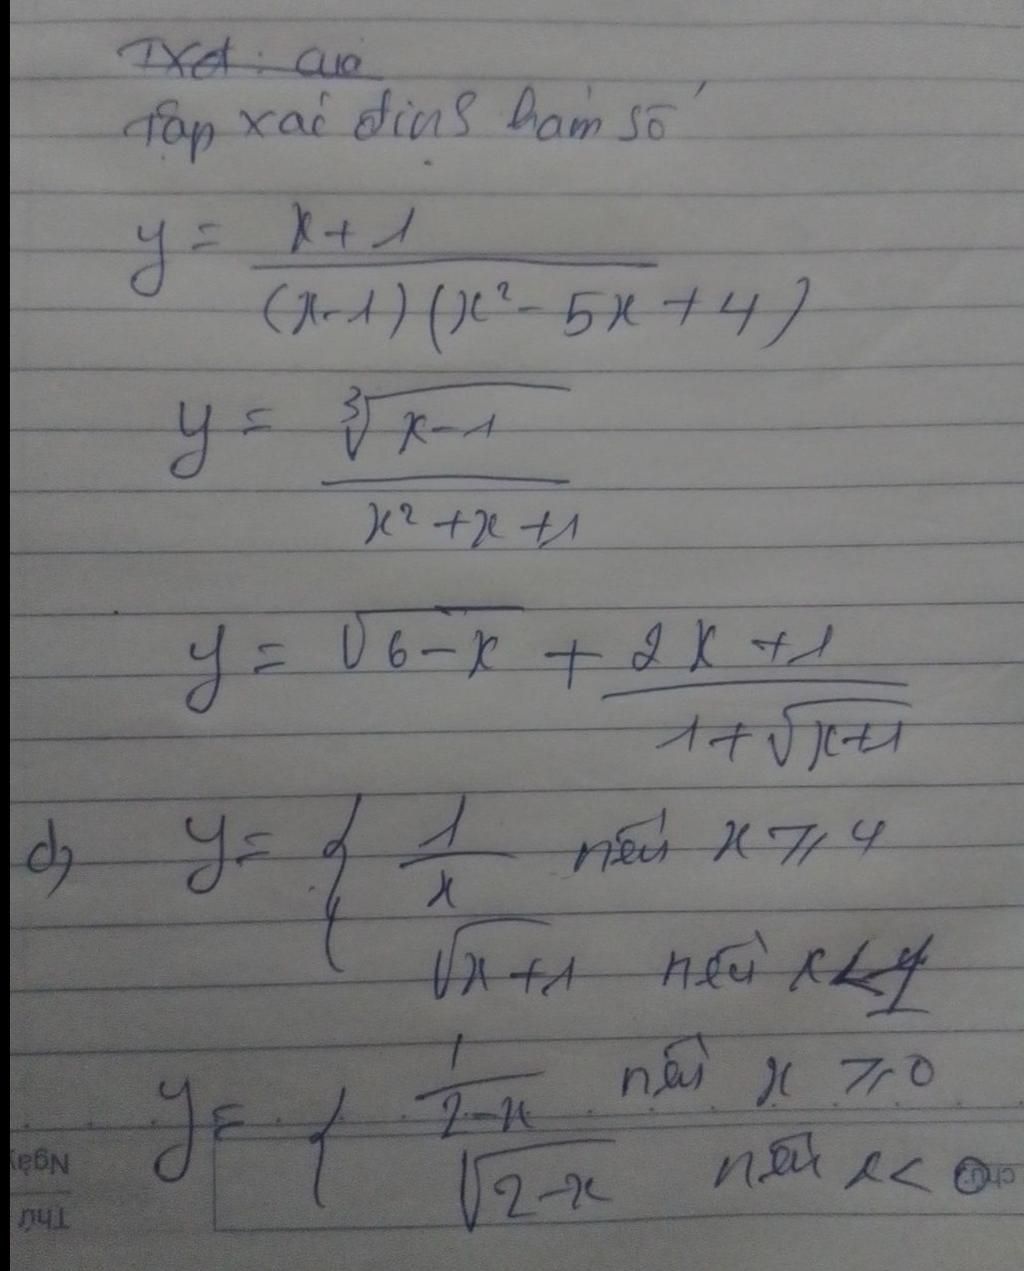 TXĐ: của
Tập xác định hàm số
y = \frac{x+1}{(x-1)(x²-5x+4)}
y = \frac{\sqrt[3]{x-1}}{x²+x+1}
y = \sqrt{6-x} + \frac{2x+1}{1+\sqrt{x+1}}
d) y = { \frac{1}{x} nếu x ⩾ 4
\sqrt{x+1} nếu x <
y = { \frac{1}{2-x} nếu x ⩾ 0
\sqrt{2-x} nếu x < 0
Ngày
Thứ